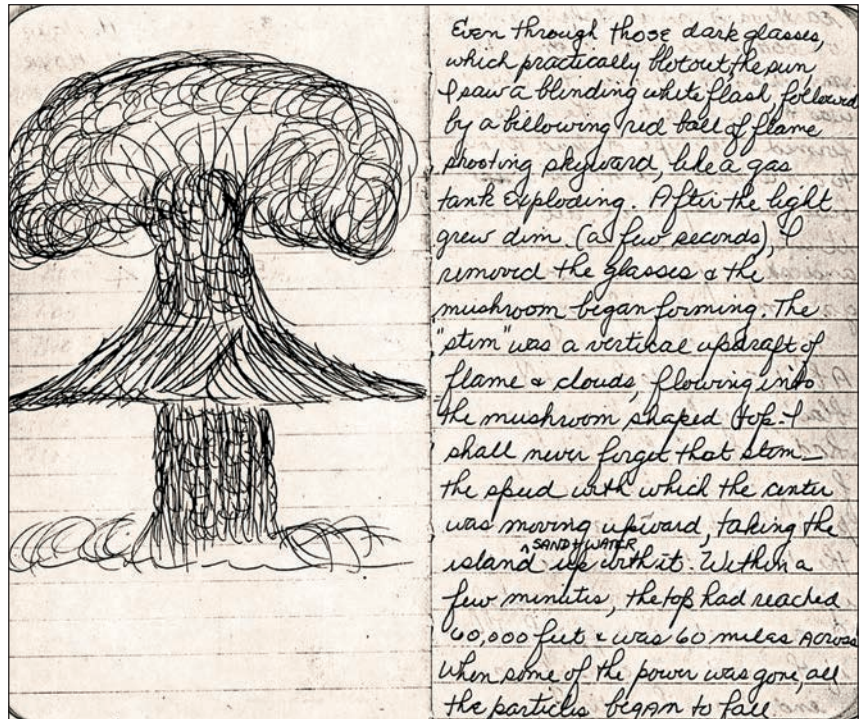 Even through those dark glasses,
which practically blot out the sun,
I saw a blinding white flash, followed
by a billowing red ball of flame
shooting skyward, like a gas
tank exploding. After the light
grew dim (a few seconds), I
removed the glasses & the
mushroom began forming. The
"stem" was a vertical updraft of
flame & clouds, flowing into
the mushroom shaped top. I
shall never forget that stem—
the speed with which the center
was moving upward, taking the
SAND & WATER
island ^ up with it. Within a
few minutes, the top had reached
60,000 feet & was 60 miles across
when some of the power was gone, all
the particles began to fall.